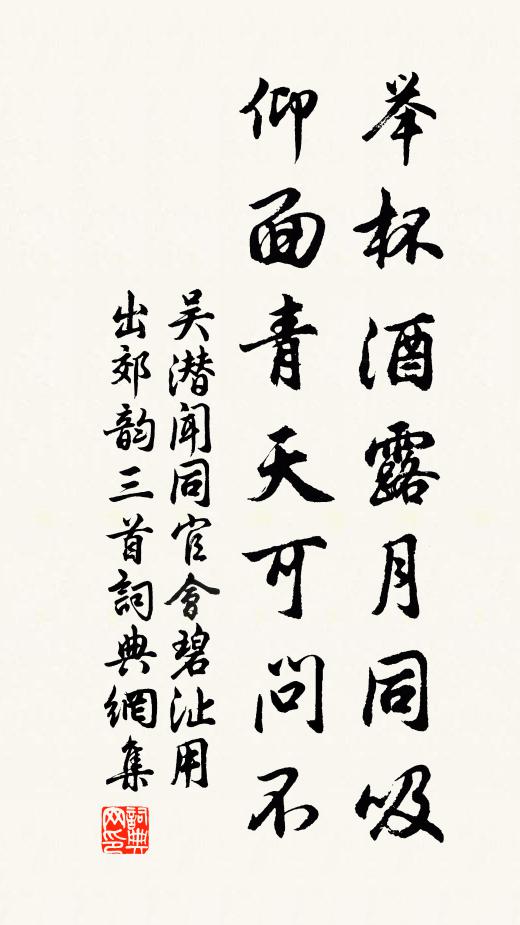 举杯酒露月同吸
仰面青天可问不
吴潜闻同官会碧沚用
出郊韵三首詞典網集
詞典网印